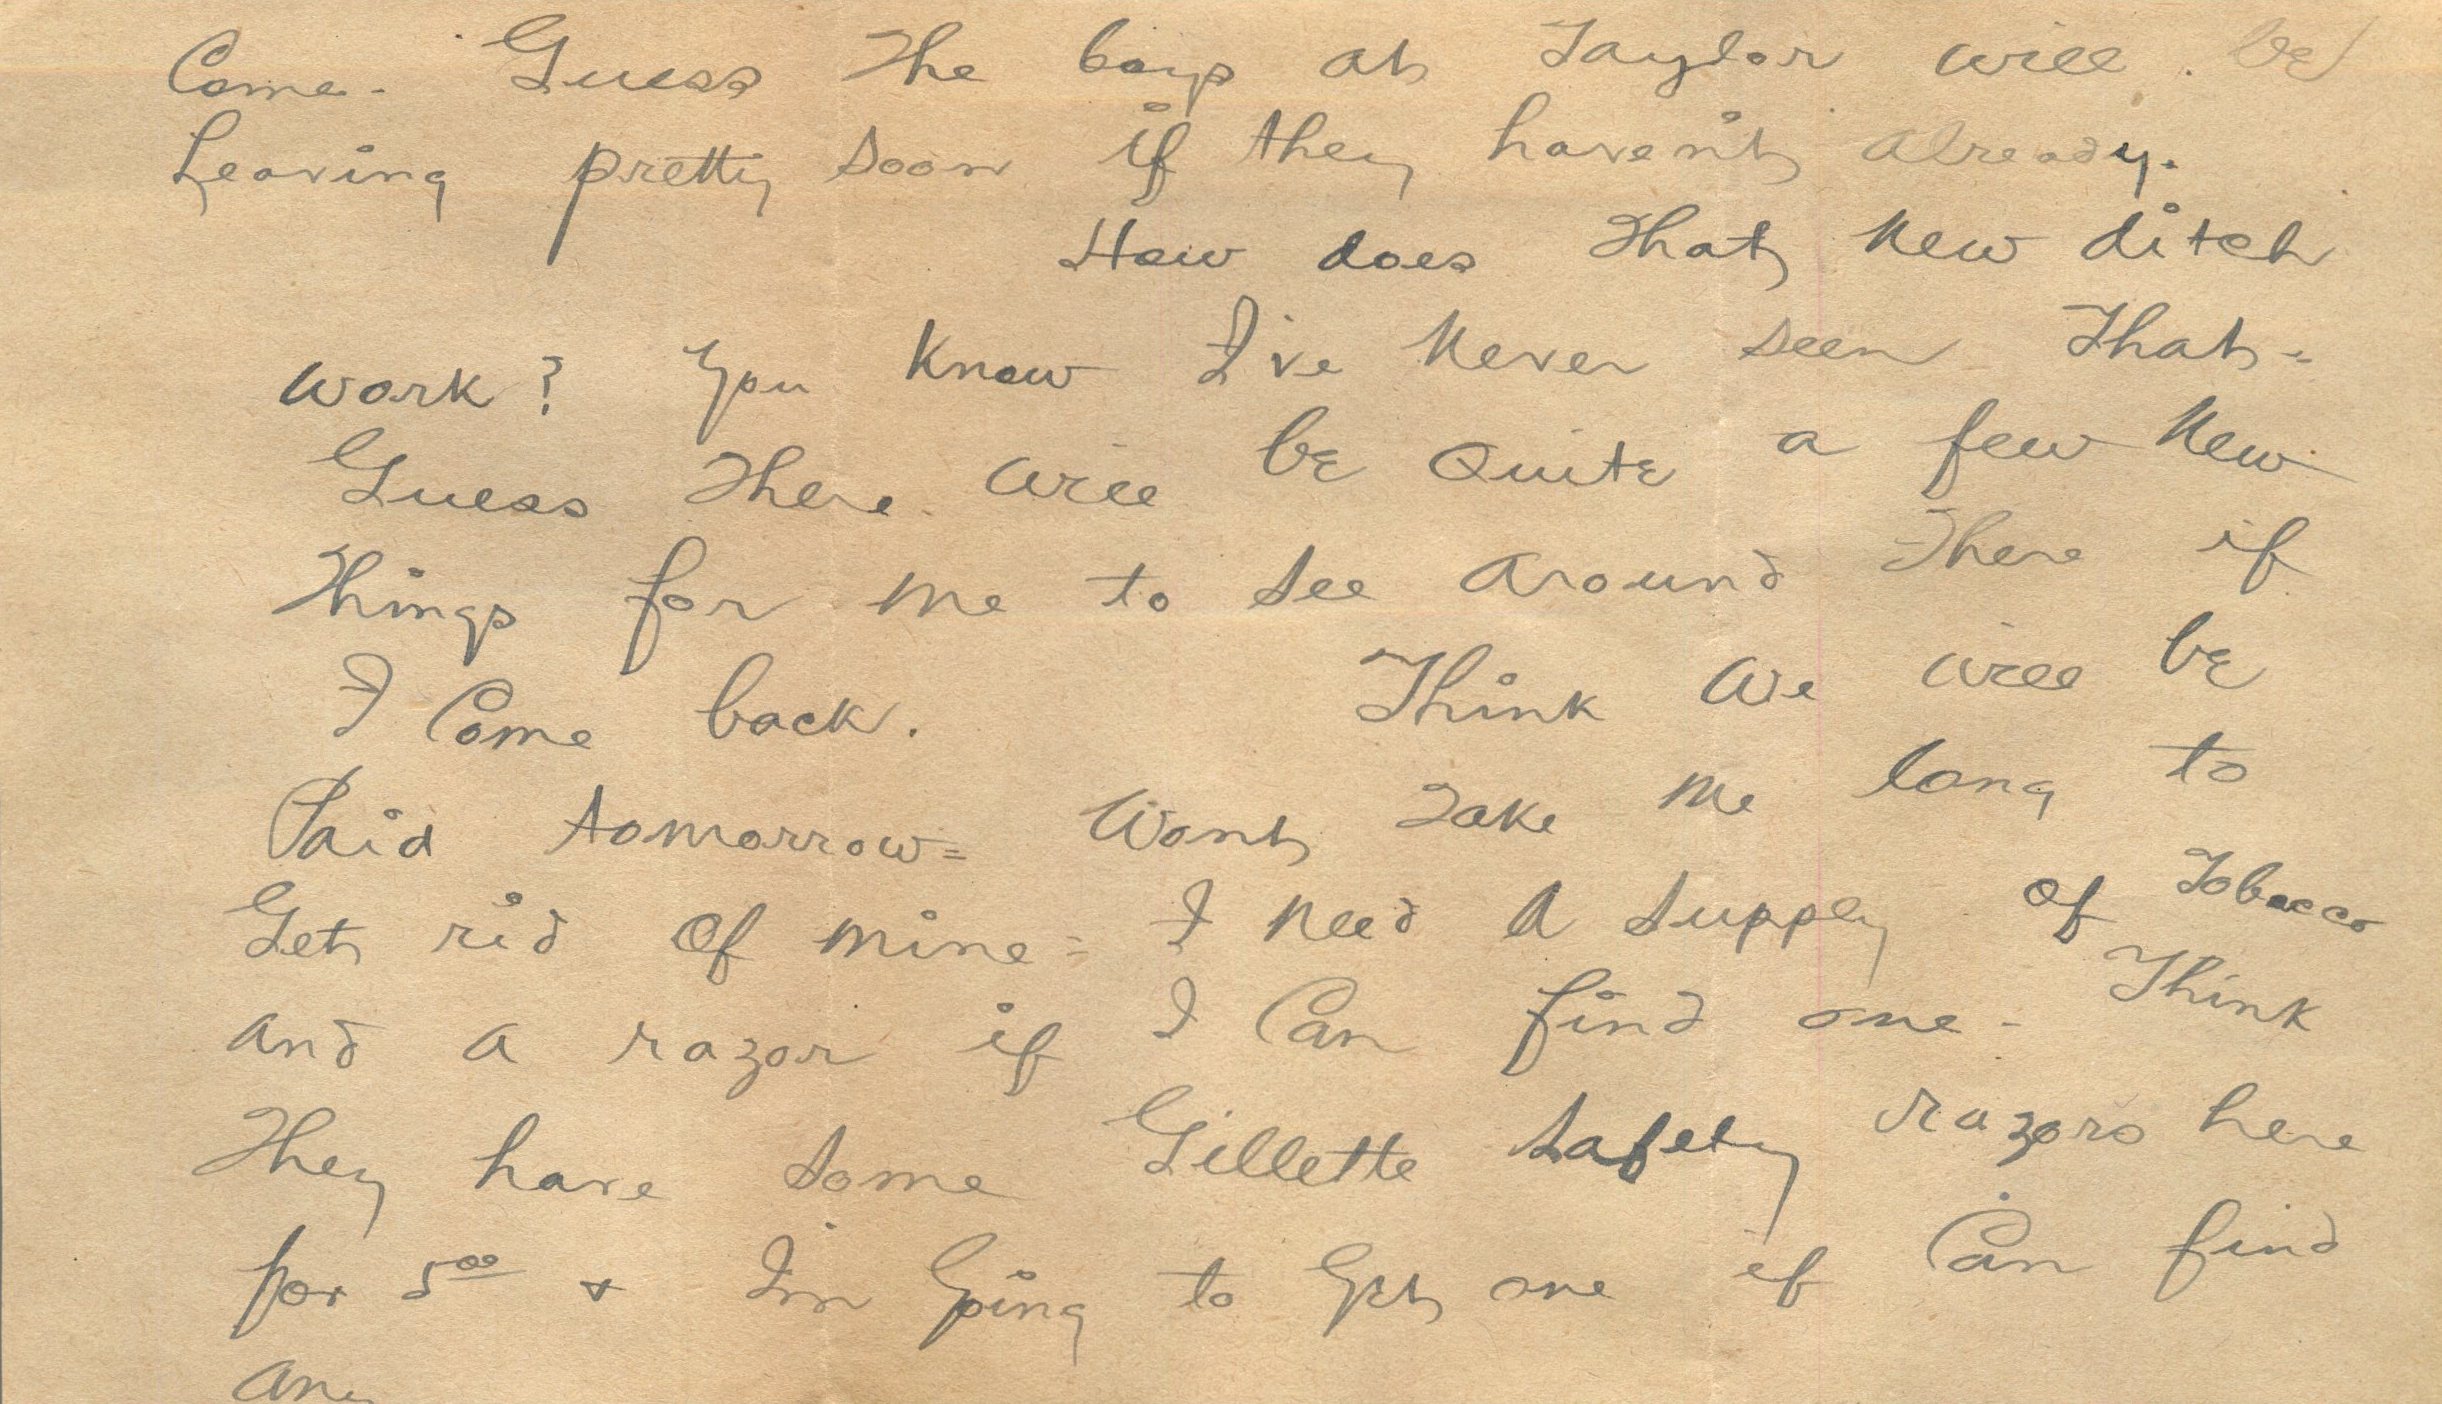 Come. Guess the boys at Taylor will be
Leaving pretty soon if they haven't already.
How does that new ditch
work? You know I've never seen that-
Guess there will be quite a few new
things for me to see around there if
I come back. Think we will be
Paid tomorrow= Wont take me long to
Get rid of mine= I need a supply of Tobacco
and a razor if I can find one- Think
they have some Gillette safety razors here
for 5.00 + I'm Going to Get one if can find
any